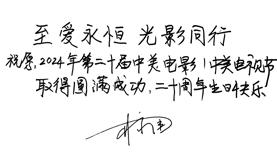 至爱永恒 光影同行
祝愿2024年第二十届中美电影/中美电视节
取得圆满成功,二十周年生日快乐